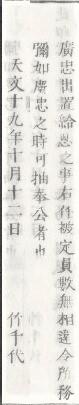 廣忠出置給恩之事右任被定員數無相違令所務
彌如廣忠之時可抽奉公者也
天文十九年十月十二日　竹千代